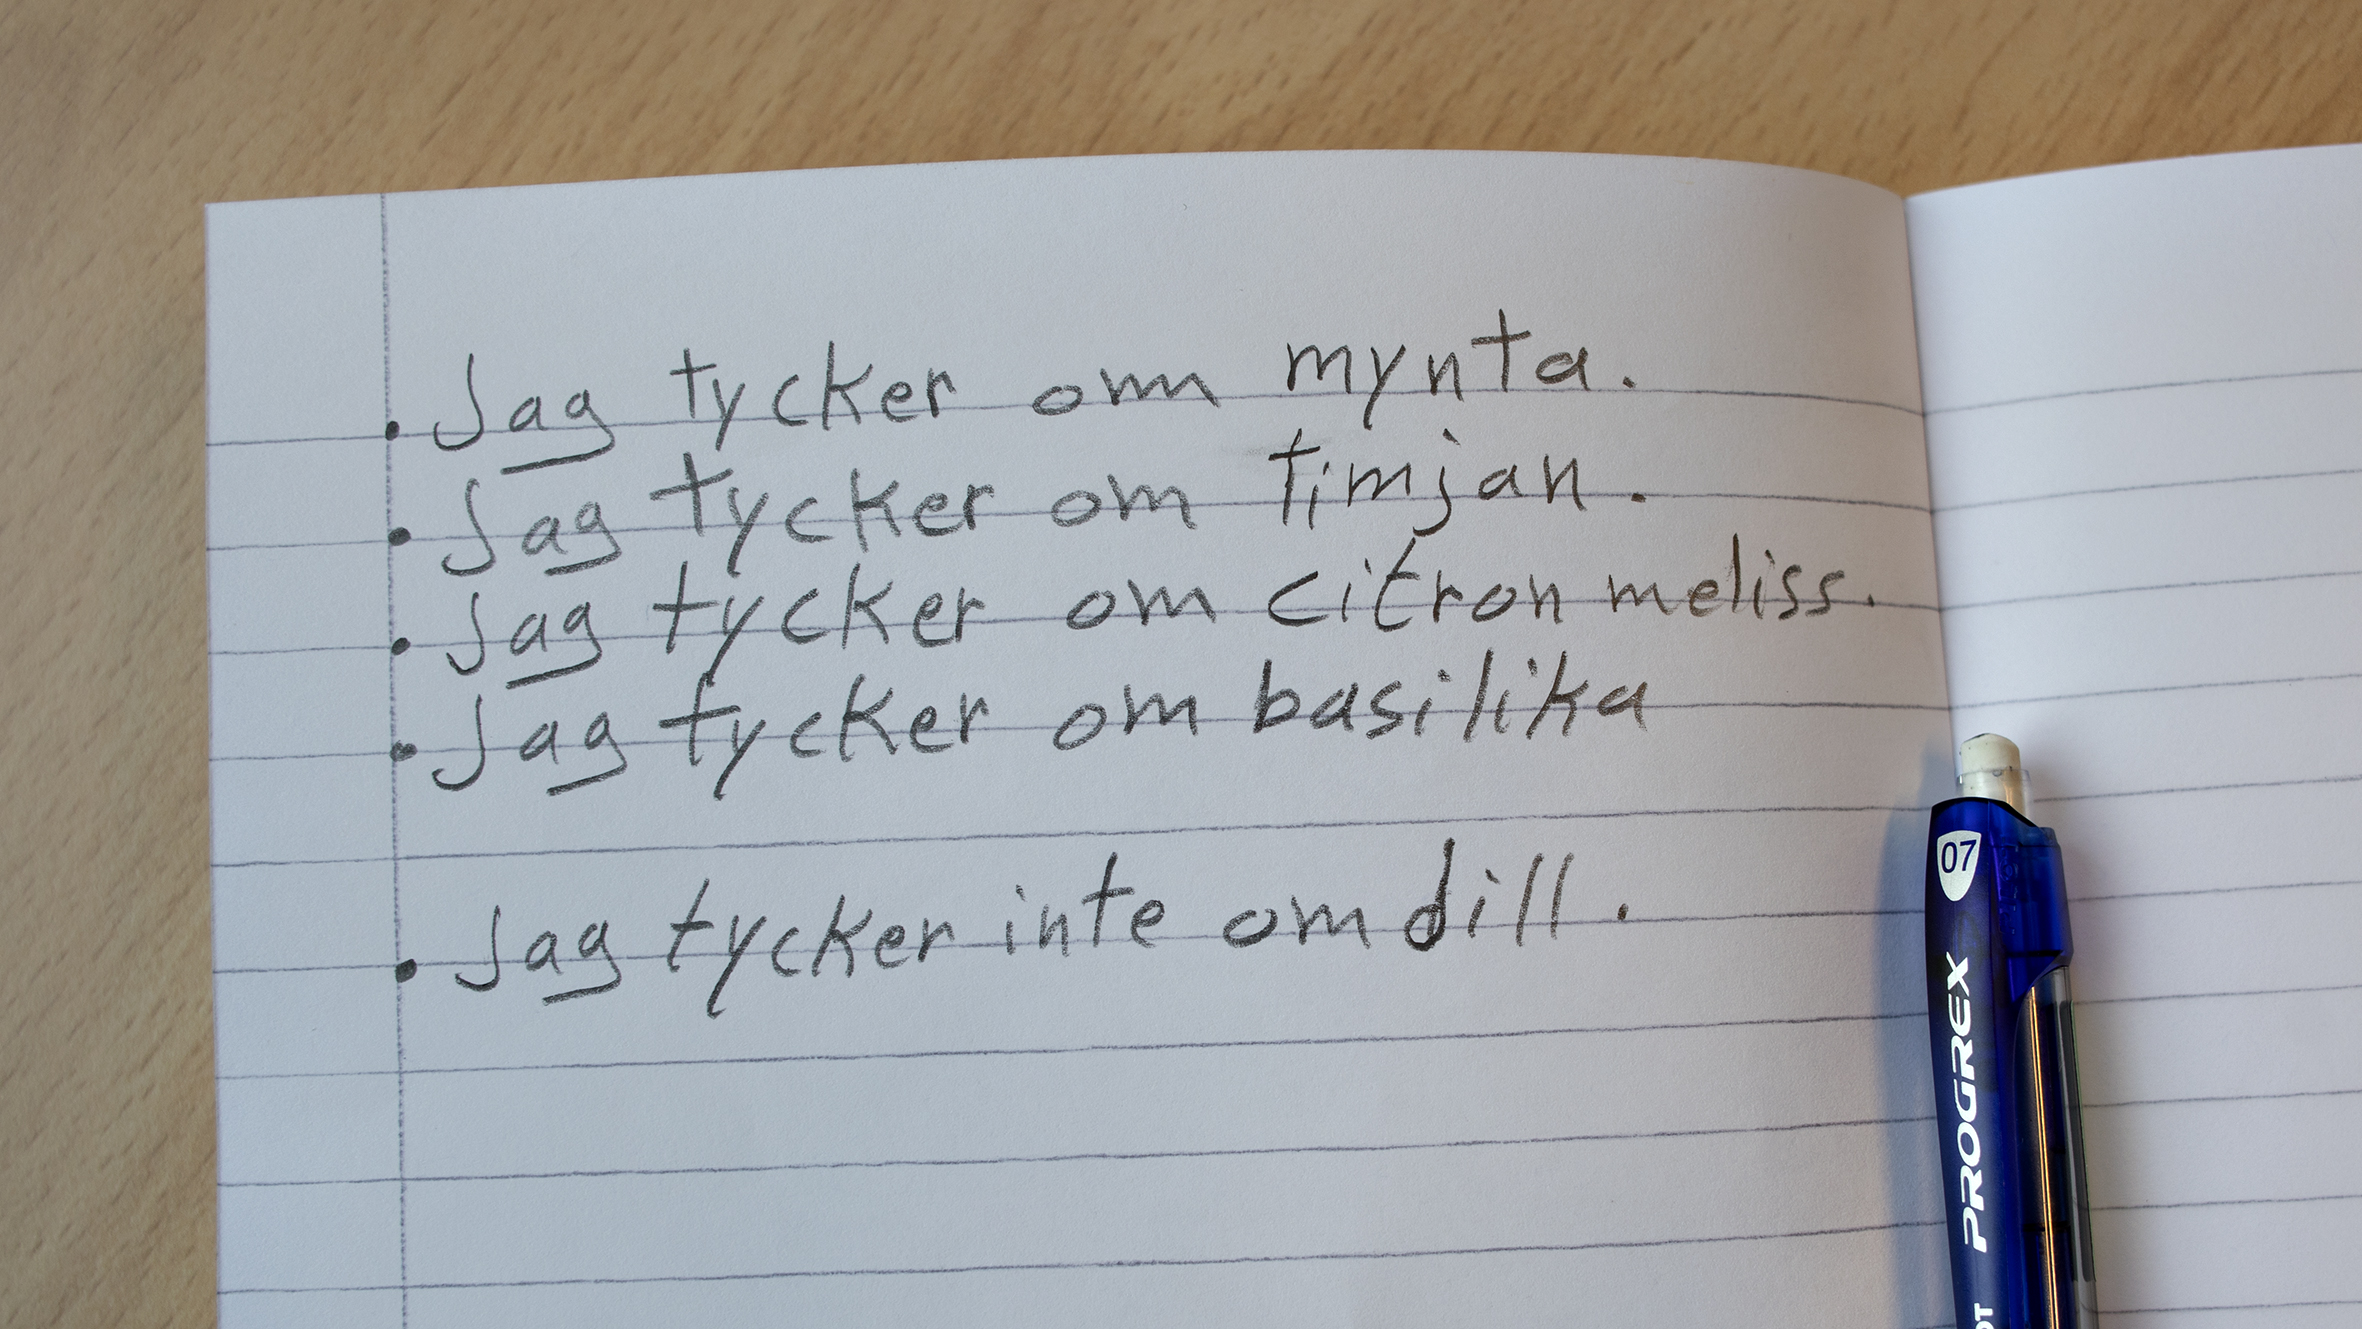 • Jag tycker om mynta.
• Jag tycker om timjan.
• Jag tycker om citron meliss.
• Jag tycker om basilika
• Jag tycker inte om dill.
07
PROGREX